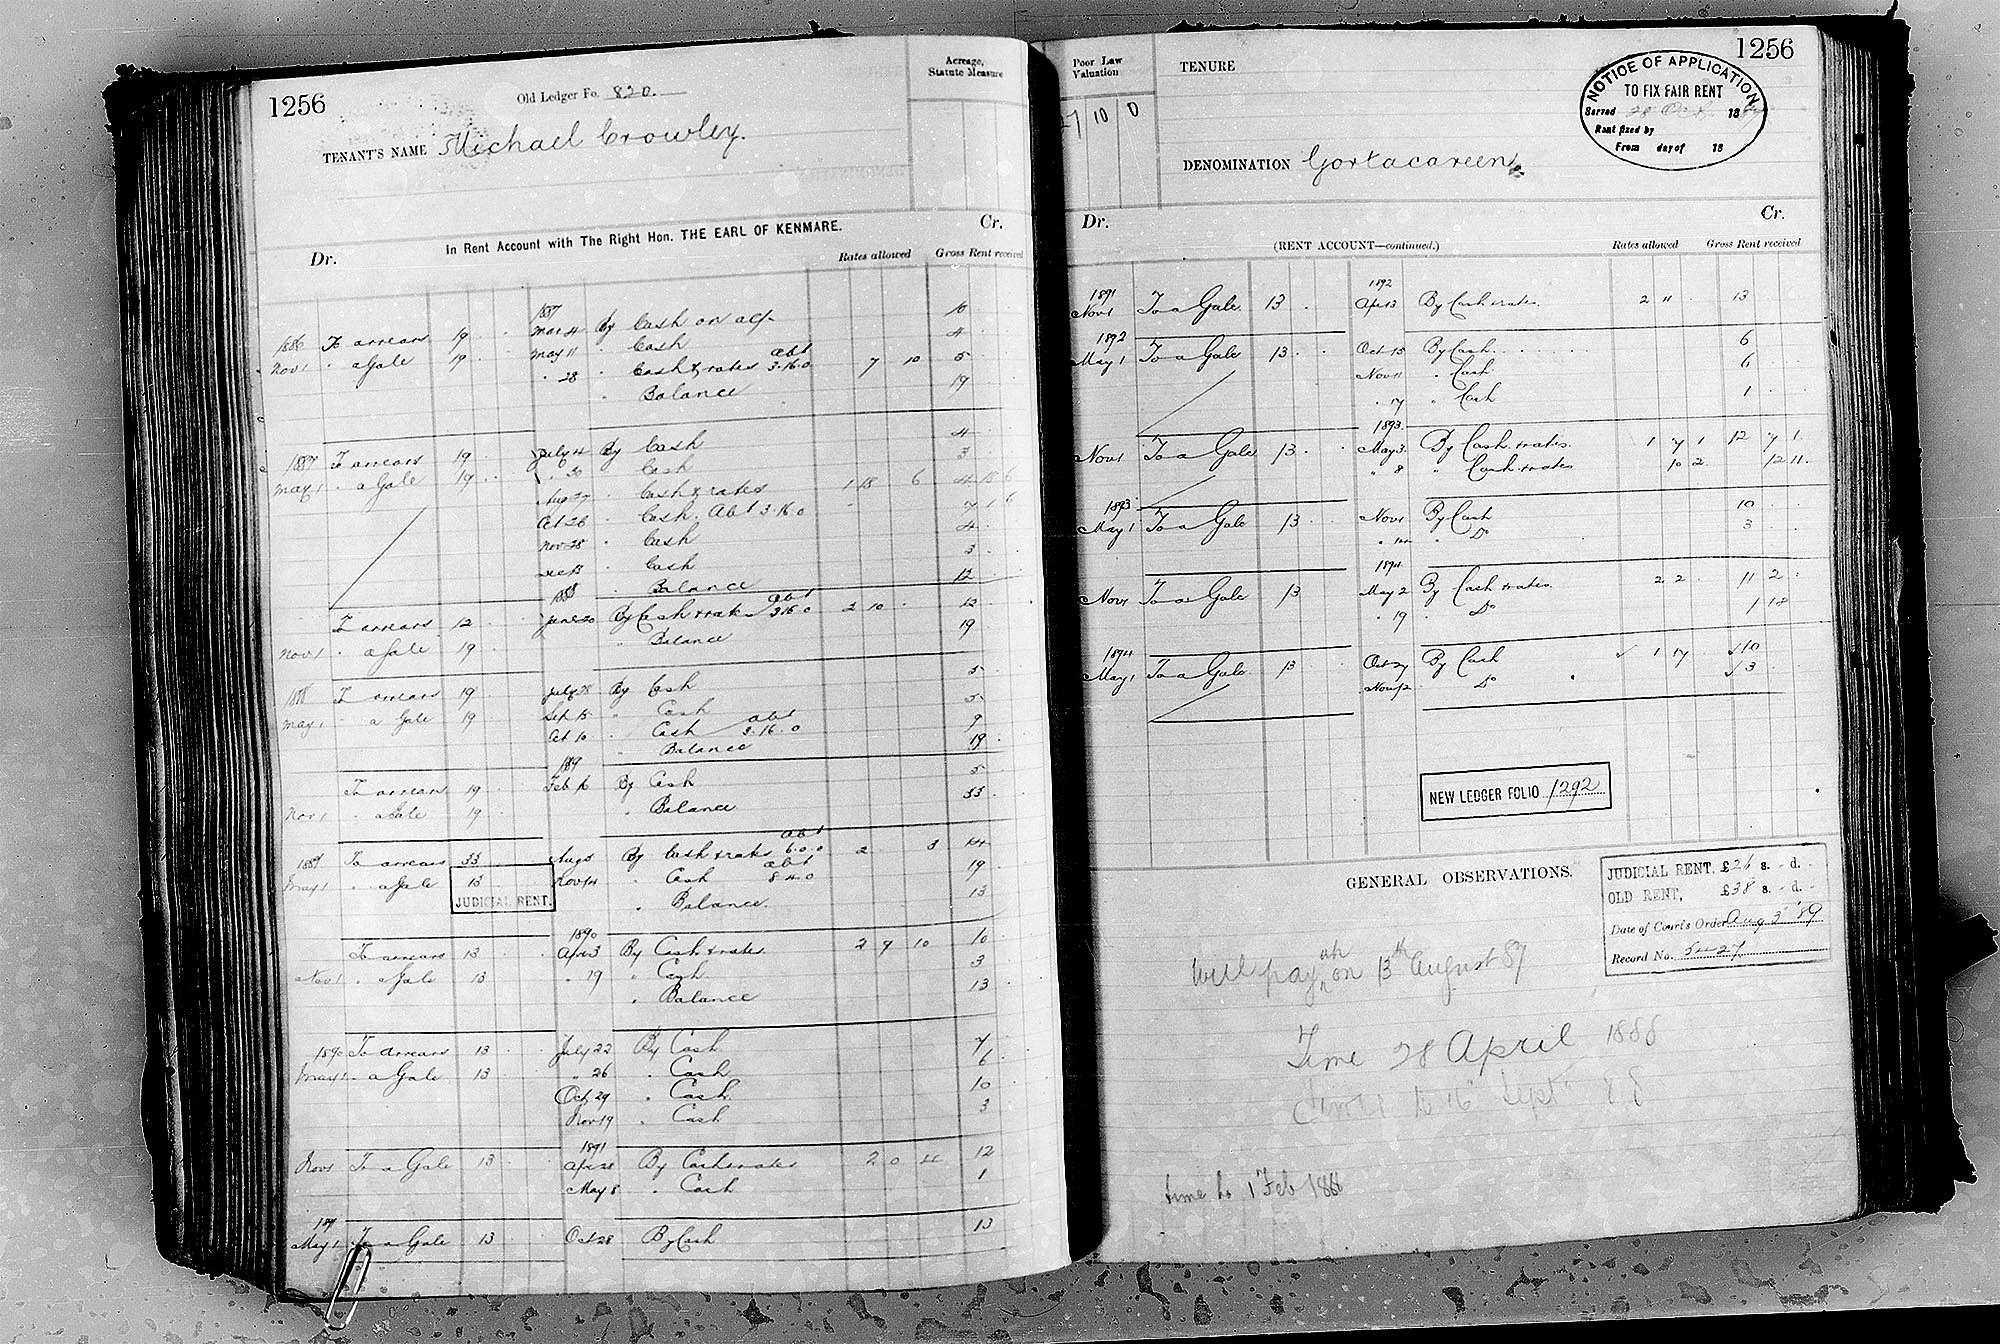 1256
Old Ledger Fo. 820.
Acreage,
Statute Measure
TENANT'S NAME Michael Crowley.
In Rent Account with The Right Hon. THE EARL OF KENMARE.
Dr. Cr.
Rates allowed Gross Rent received
1887
1886 To arrears 19 Mar 4 By Cash on a/c 10
Nov 1 " a Gale 19 May 11 " Cash 4
" 28 " Cash & rates abt 3.16.0 7 10 5
" Balance 19
1887 To arrears 19 July 4 By Cash 4
May 1 " a Gale 19 " 30 " Cash 3
Aug 27 " Cash & rates 1 18 6 4 18 6
Oct 26 " Cash. Abt 3.16.0 7 1 6
Nov 28 " Cash 4
Dec 13 " Cash 3
" Balance 12
1888
To arrears 12 June 20 By Cash & rates abt 3.16.0 2 10 12
Nov 1 " a Gale 19 " Balance 19
1888 To arrears 19 July 28 By Cash 5
May 1 " a Gale 19 Sep 15 " Cash 5
Oct 10 " Cash abt 3.16.0 9
" Balance 19
1889
To arrears 19 Feb 16 By Cash 5
Nov 1 " a Gale 19 " Balance 33
1889 To arrears 33 Aug 5 By Cash & rates abt 6.0.0 2 3 14
May 1 " a Gale 13 Nov 14 " Cash abt 8.4.0 19
JUDICIAL RENT. " Balance. 13
1890
To arrears 13 Apr 3 By Cash & rates 2 9 10 10
Nov 1 " a Gale 13 " 19 " Cash 3
" Balance 13
1890 To arrears 13 July 22 By Cash 7
May 1 " a Gale 13 " 26 " Cash 6
Oct 29 " Cash 10
Nov 19 " Cash 3
1891
Nov 1 To a Gale 13 Apr 28 By Cash & rates 2 0 4 12
May 8 " Cash 1
1891
May 1 To a Gale 13 Oct 28 By Cash 13
1256
Poor Law
Valuation
10 0
TENURE
NOTICE OF APPLICATION
TO FIX FAIR RENT
Served 28 Oct 18
Rent fixed by
From day of 18
DENOMINATION Gortacareen
Dr. Cr.
(RENT ACCOUNT—continued.)
Rates allowed Gross Rent received
1891 1892
Nov 1 To a Gale 13 Apr 13 By Cash & rates 2 " 13
1892
May 1 To a Gale 13 Oct 15 By Cash 6
Nov 11 " Cash 6
" 17 " Cash 1
1893
Nov 1 To a Gale 13 May 3 By Cash & rates 1 7 1 12 7 1
" 8 " Cash & rates 10 2 12 11
1893
May 1 To a Gale 13 Nov 1 By Cash 10
" 14 " Do 3
1894
Nov 1 To a Gale 13 May 2 By Cash & rates 2 2 11 2
" 19 " Do 1 18
1894
May 1 To a Gale 13 Oct 27 By Cash 1 17 10
Nov 12 Do 3
NEW LEDGER FOLIO 1292
GENERAL OBSERVATIONS.
JUDICIAL RENT, £26 s. - d. -
OLD RENT, £38 s. - d. -
Date of Court's Order Aug 3 '89
Record No. 5427
Will pay on 13th August 87
Time 28 April 1888
Time to 16 Sept 88
time to 1 Feb 1888